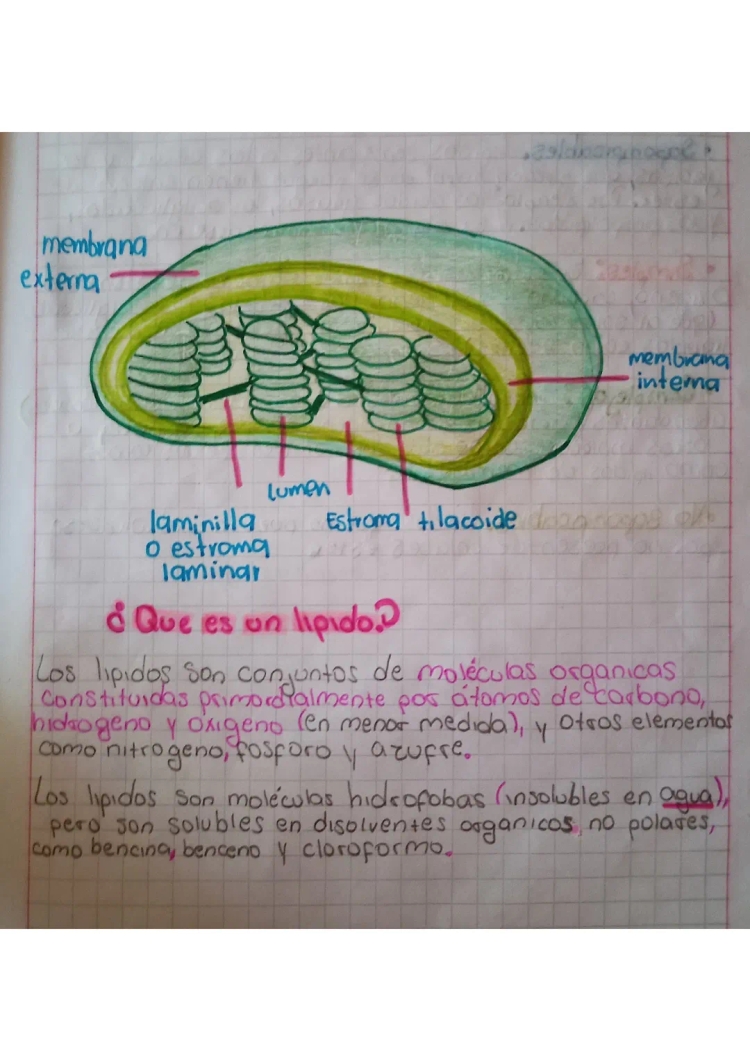 membrana
externa
membrana
interna
lumen
laminilla
o estroma
laminar
Estroma
tilacoide
¿Que es un lipido?
Los lipidos son conjuntos de moléculas organicas
constituidas primordialmente por átomos de carbono,
hidrogeno y oxigeno (en menor medida), y otros elementos
como nitrogeno, fosforo y azufre.
Los lipidos son moléculas hidrofobas (insolubles en agua),
pero son solubles en disolventes organicos, no polares,
como bencina, benceno y cloroformo.